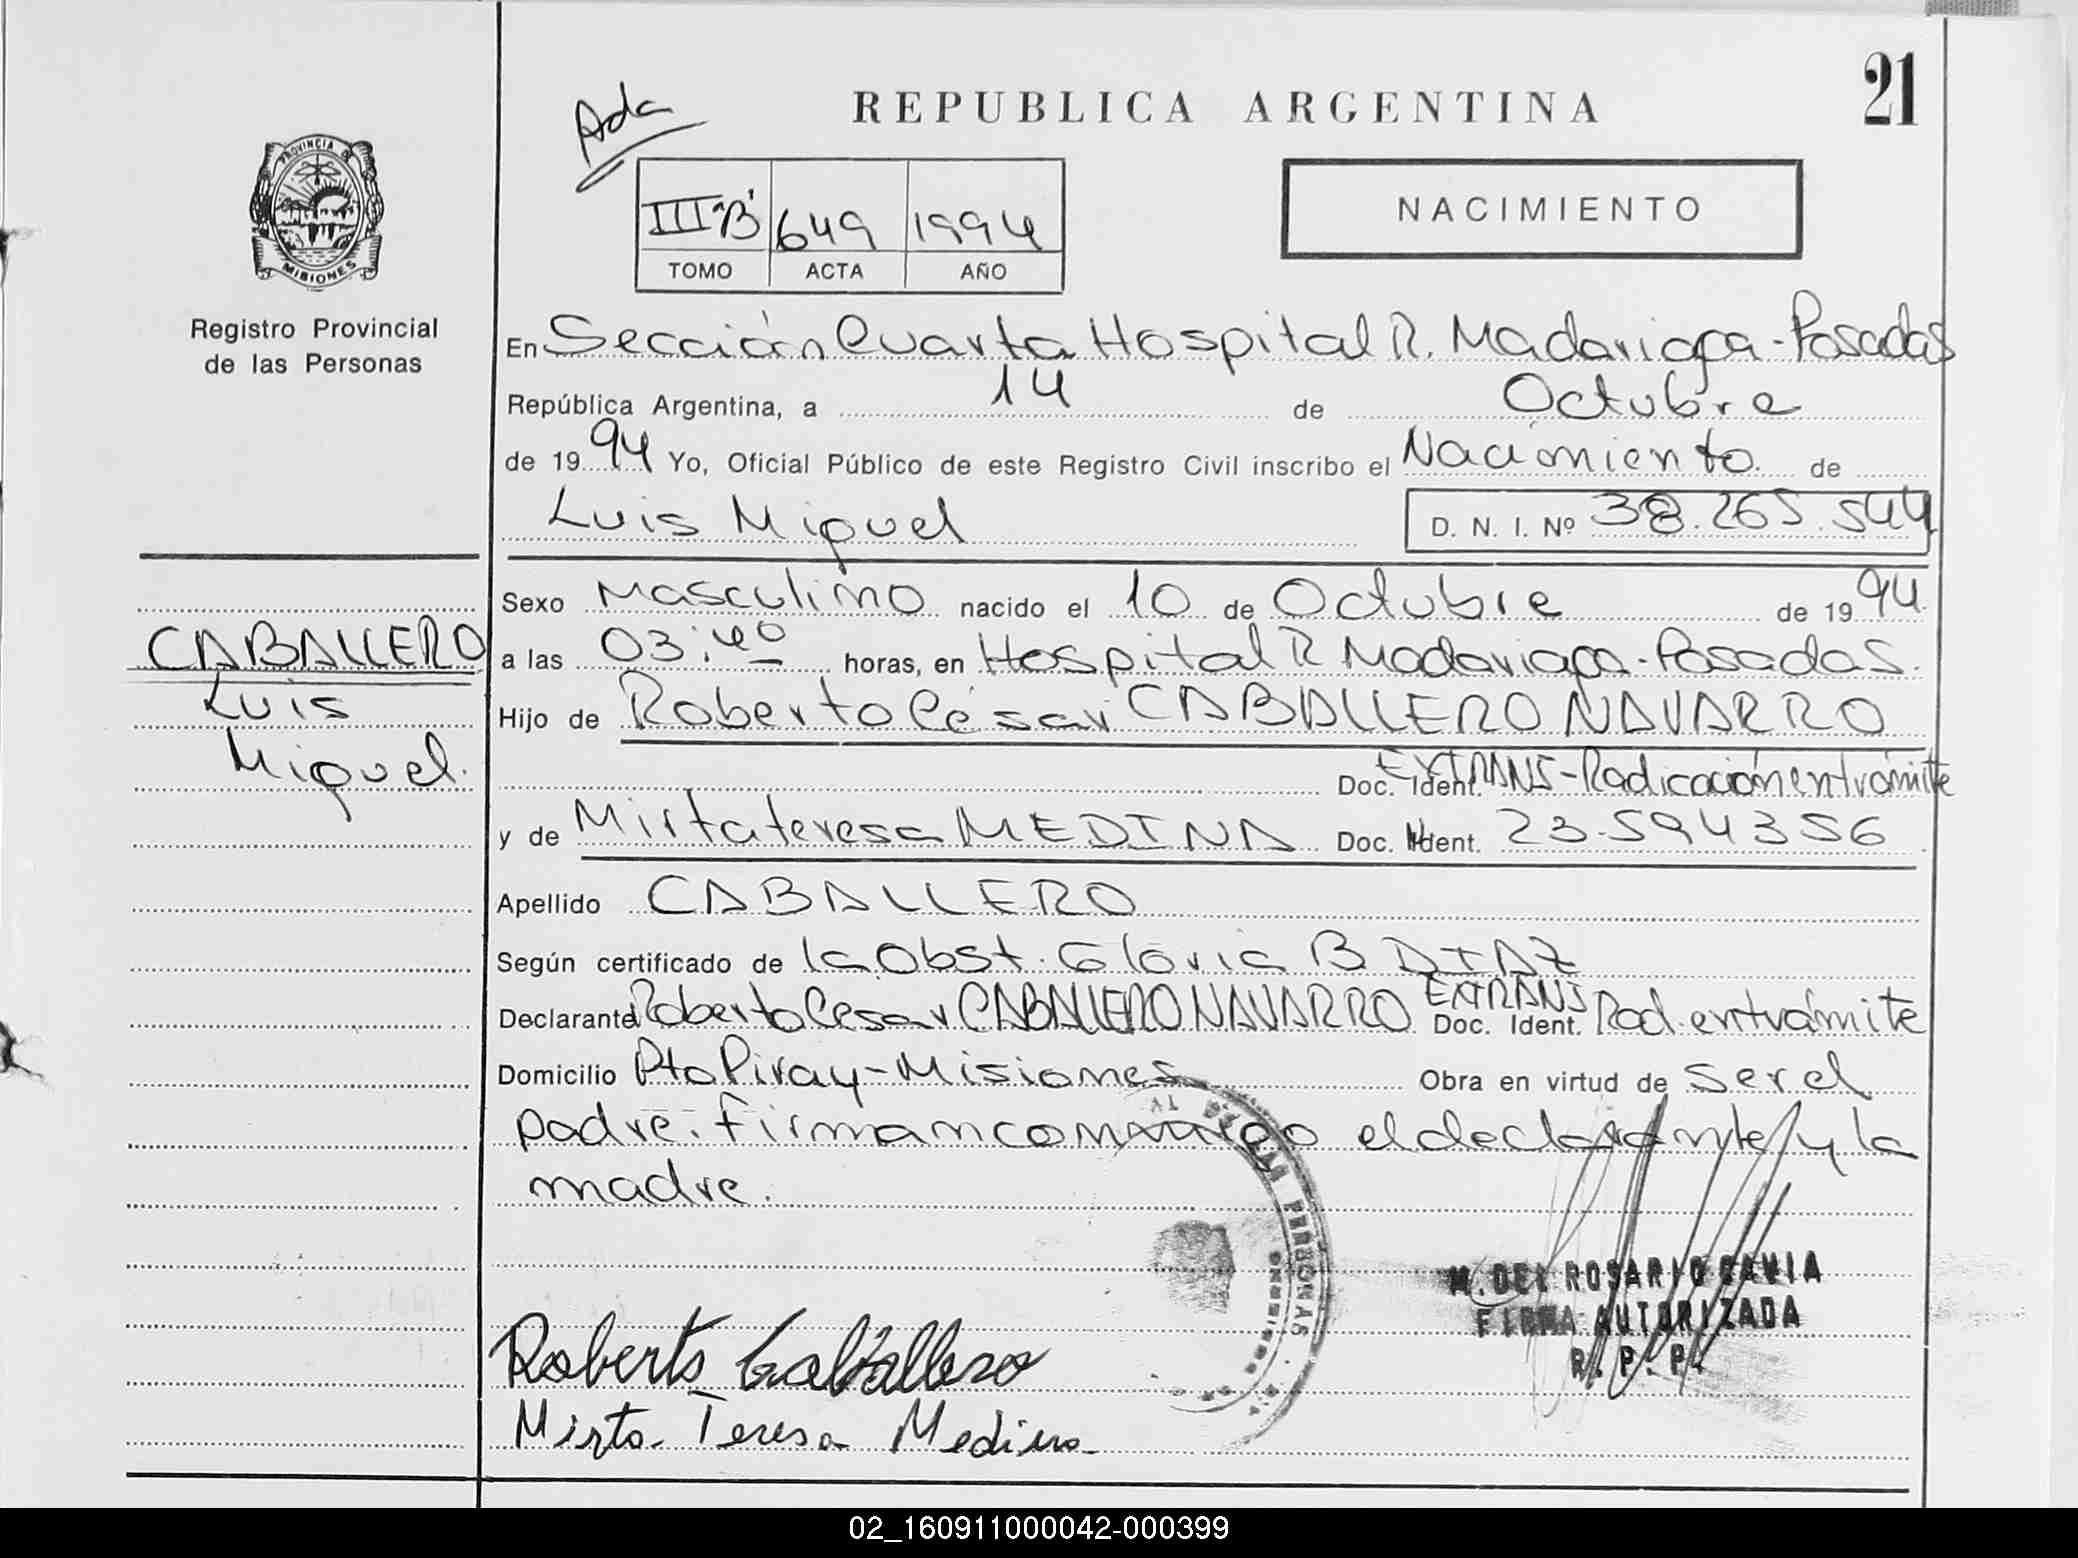 21
Ada
REPUBLICA ARGENTINA
PROVINCIA DE
MISIONES
III "B" 649 1994
TOMO ACTA AÑO
NACIMIENTO
Registro Provincial
de las Personas
En Sección Cuarta Hospital R. Madariaga - Posadas
República Argentina, a 14 de Octubre
de 1994 Yo, Oficial Público de este Registro Civil inscribo el Nacimiento de
Luis Miguel D. N. I. Nº 38.265.544
Sexo Masculino nacido el 10 de Octubre de 1994
CABALLERO
Luis
Miguel.
a las 03:40 horas, en Hospital R Madariaga - Posadas.
Hijo de Roberto César CABALLERO NAVARRO
Doc. Ident. EXTRANJ - Radicación en trámite
y de Mirta teresa MEDINA Doc. Ident. 23.594356
Apellido CABALLERO
Según certificado de la Obst. Gloria B DIAZ
Declarante Roberto César CABALLERO NAVARRO Doc. Ident. EXTRANJ Rad. en trámite
Domicilio Pto Piray - Misiones Obra en virtud de ser el
padre. firman conmigo el declarante y la
madre.
DE LAS PERSONAS
MISIONES
M. DEL ROSARIO GAVIA
FIRMA AUTORIZADA
R. P. P.
Roberto Caballero
Mirta Teresa Medina
02_160911000042-000399